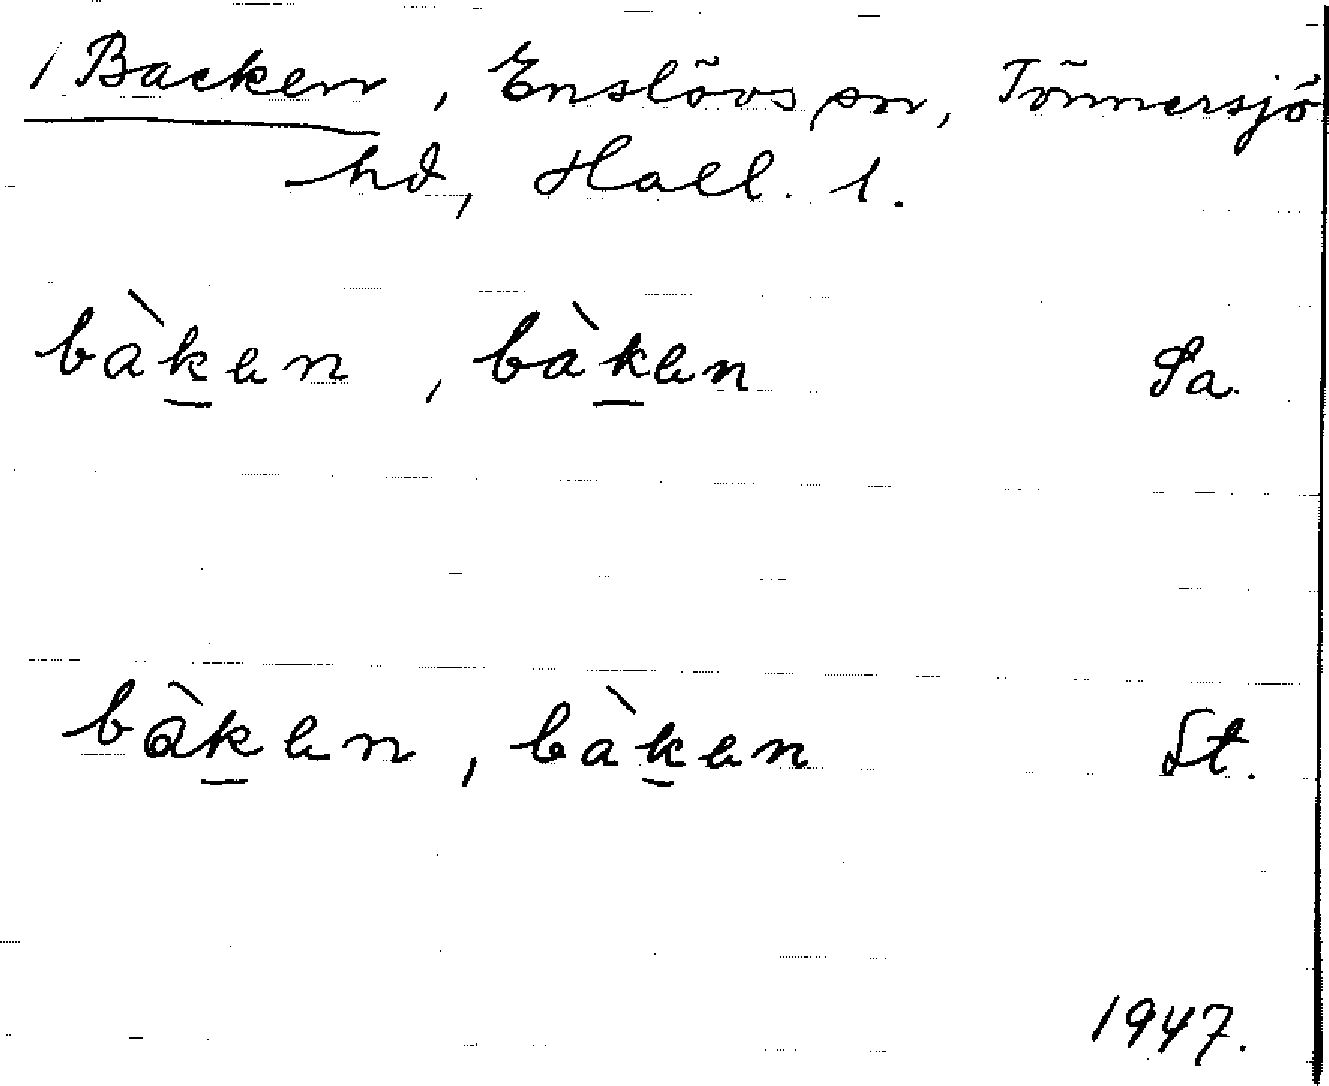 / Backen, Enslövs sn, Tönnersjö
hd, Hall. l.
bàk̲en, bàk̲en Sa.
bàk̲en, bàk̲en St.
1947.